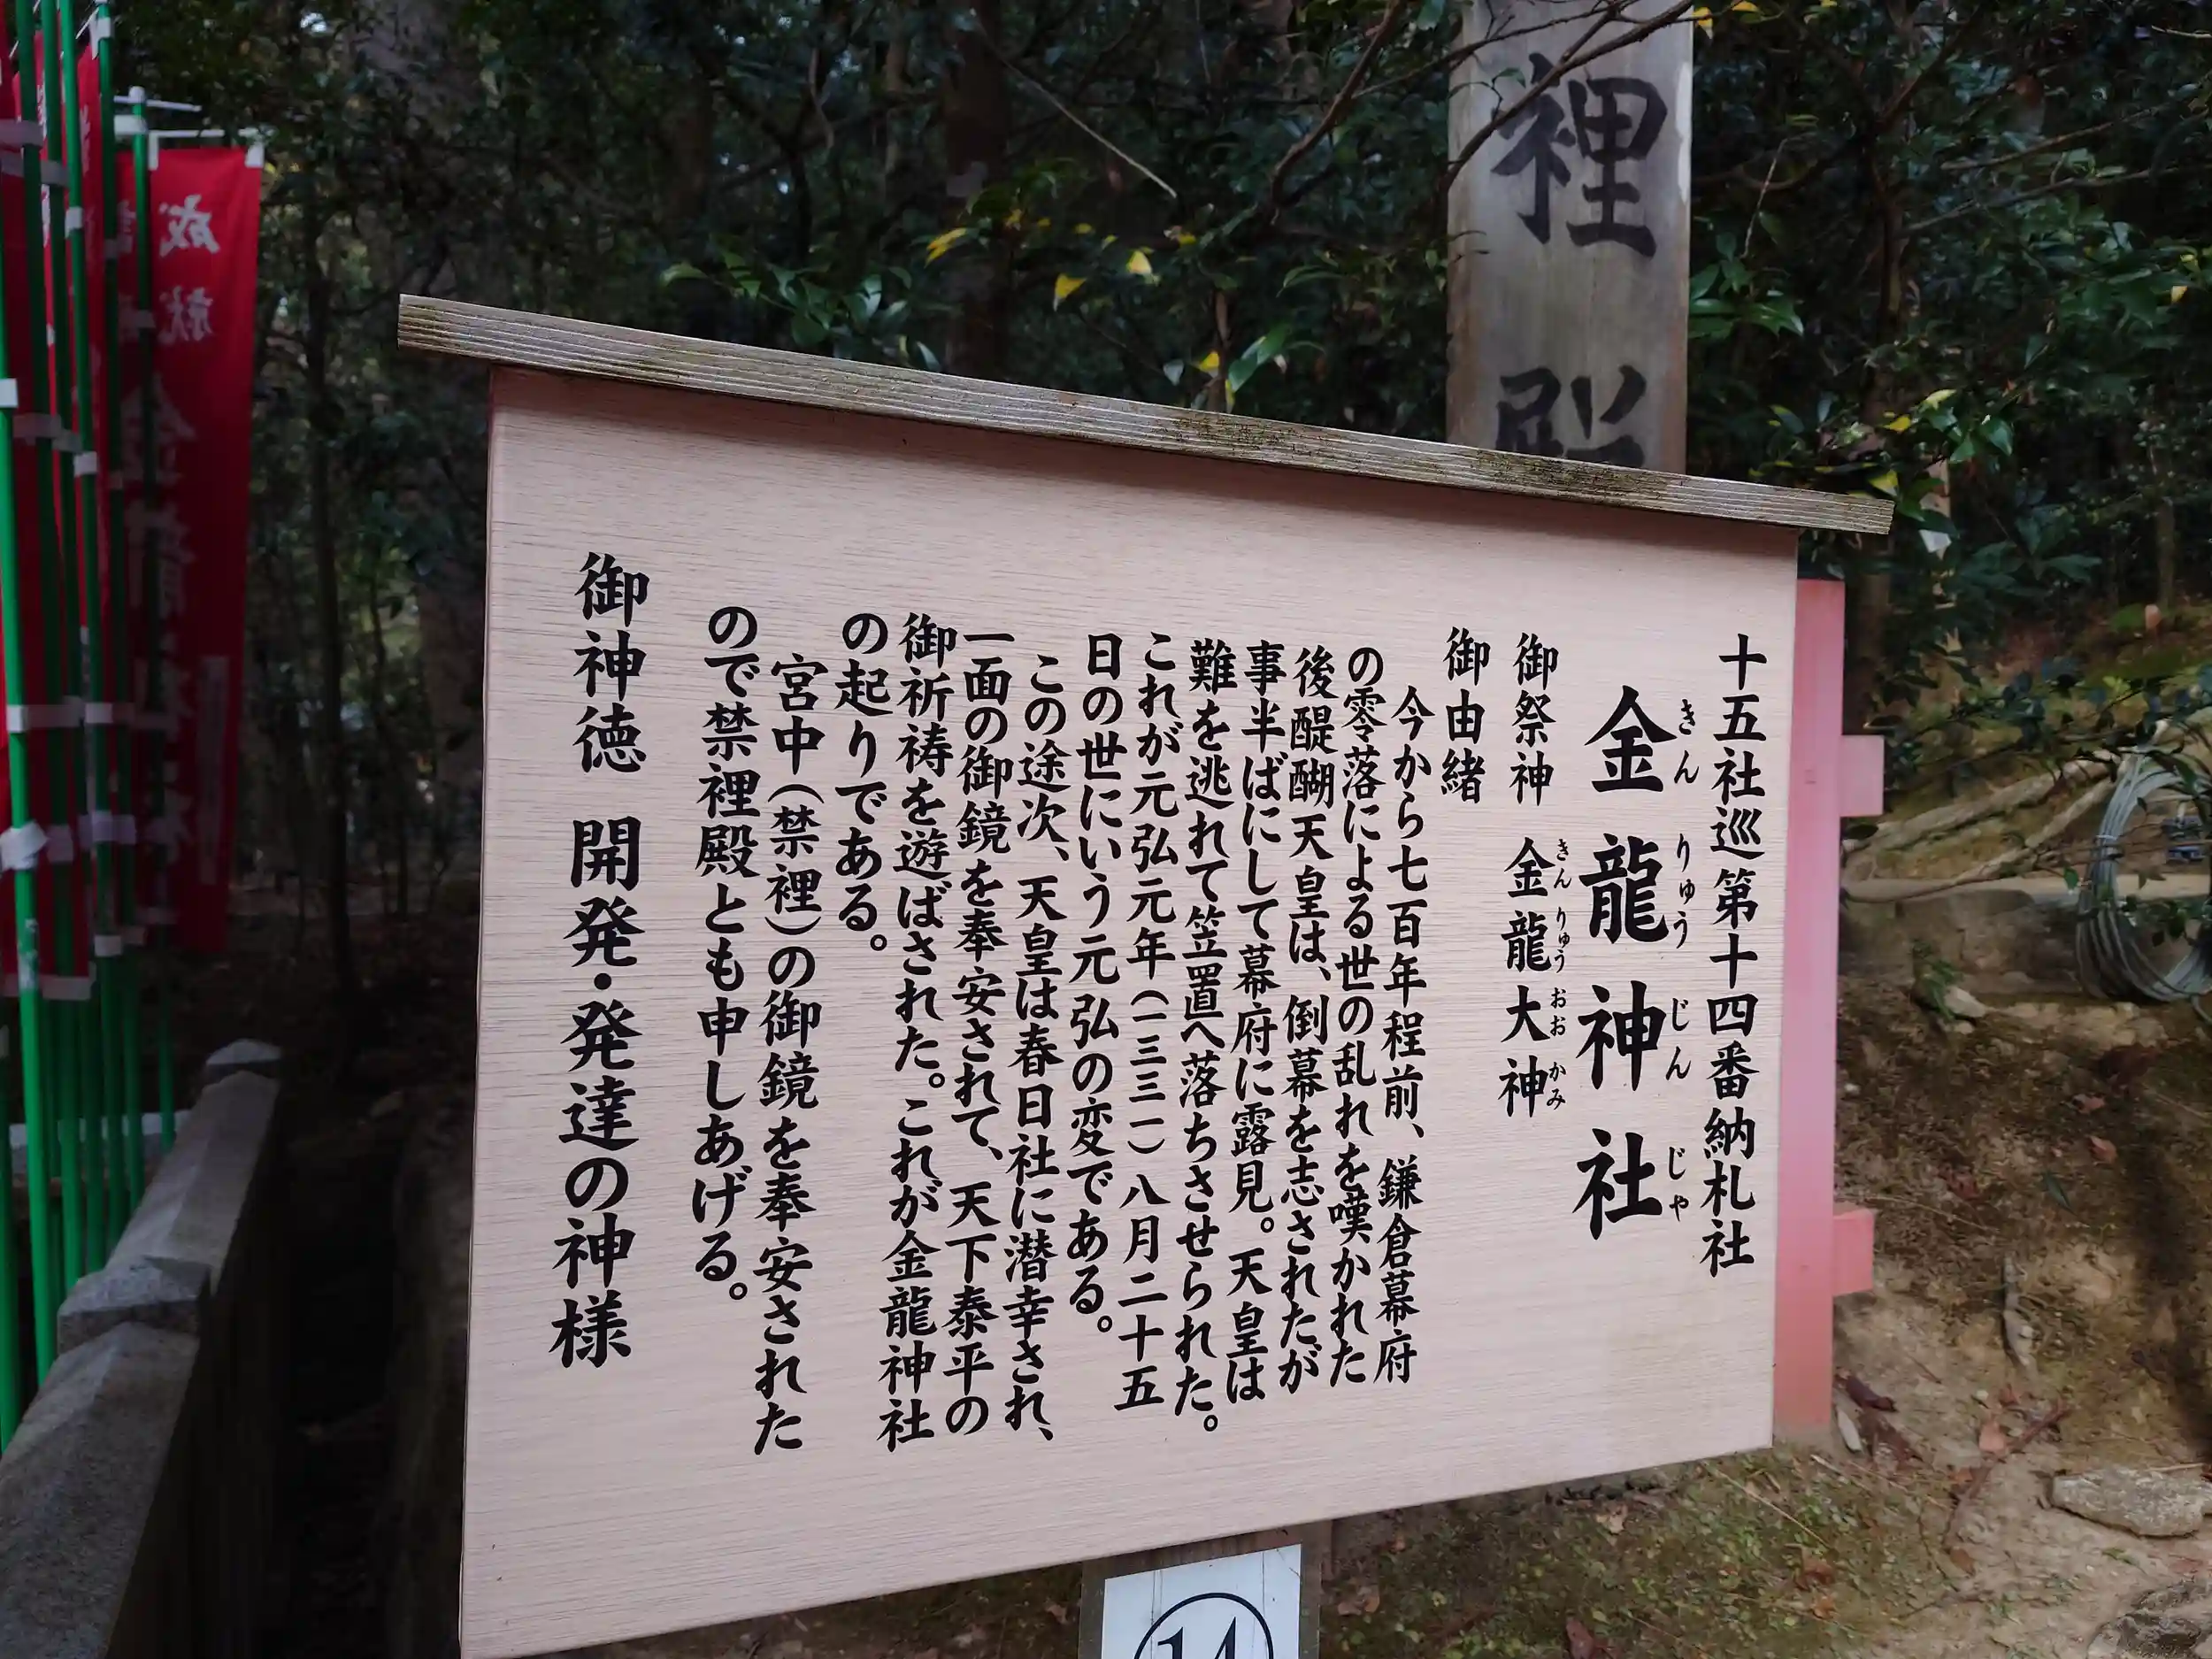 十五社巡第十四番納札社
金龍神社
きんりゅうじんじゃ
御祭神 金龍大神
きんりゅうおおかみ
御由緒
今から七百年程前、鎌倉幕府
の零落による世の乱れを嘆かれた
後醍醐天皇は、倒幕を志されたが
事半ばにして幕府に露見。天皇は
難を逃れて笠置へ落ちさせられた。
これが元弘元年(一三三一)八月二十五
日の世にいう元弘の変である。
この途次、天皇は春日社に潜幸され、
一面の御鏡を奉安されて、天下泰平の
御祈祷を遊ばされた。これが金龍神社
の起りである。
宮中(禁裡)の御鏡を奉安された
ので禁裡殿とも申しあげる。
御神徳 開発・発達の神様
裡殿
14
成就